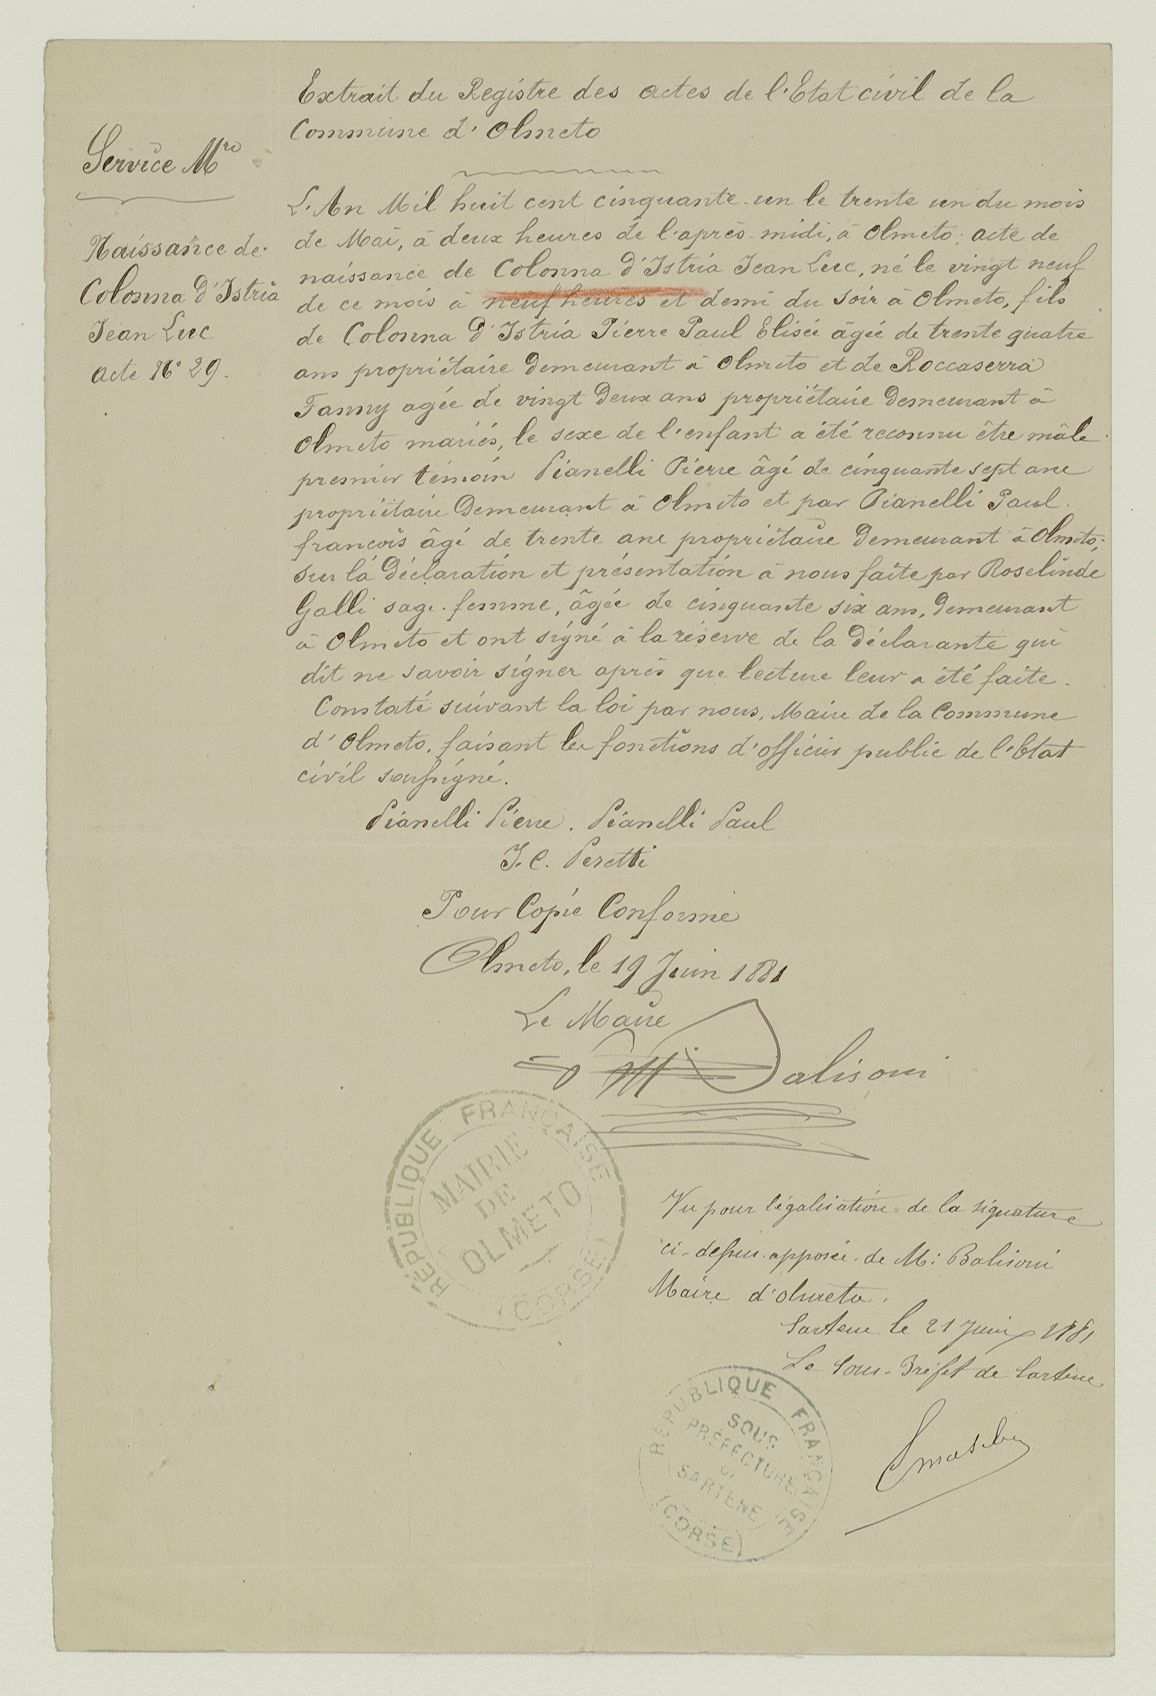 Extrait du Registre des actes de l'Etat civil de la
Commune d'Olmeto
Service Mre
Naissance de
Colonna d'Istria
Jean Luc
acte N° 29.
L'An Mil huit cent cinquante un le trente un du mois
de Mai, à deux heures de l'après midi, à Olmeto; acte de
naissance de Colonna d'Istria Jean Luc, né le vingt neuf
de ce mois à neuf heures et demi du soir à Olmeto, fils
de Colonna d'Istria Pierre Paul Elisée âgée de trente quatre
ans propriétaire demeurant à Olmeto et de Roccaserra
Fanny agée de vingt deux ans propriétaire demeurant à
Olmeto mariés, le sexe de l'enfant a été reconnu être mâle
premier témoin Pianelli Pierre âgé de cinquante sept ans
propriétaire demeurant à Olmeto et par Pianelli Paul
françois âgé de trente ans propriétaire demeurant à Olmeto;
sur la déclaration et présentation à nous faite par Roselinde
Galli sage-femme, âgée de cinquante six ans, demeurant
à Olmeto et ont signé à la réserve de la déclarante qui
dit ne savoir signer après que lecture leur a été faite.
Constaté suivant la loi par nous, Maire de la Commune
d'Olmeto, faisant les fonctions d'officier public de l'Etat
civil soussigné.
Pianelli Pierre. Pianelli Paul
J. C. Peretti
Pour Copie Conforme
Olmeto, le 19 Juin 1881
Le Maire
Balisoni
RÉPUBLIQUE FRANÇAISE
MAIRIE
DE
OLMETO
(CORSE)
Vu pour légalisation de la signature
ci-dessus apposée de M. Balisoni
Maire d'olmeto.
Sartene le 21 Juin 1881
Le Sous-Préfet de Sartène
RÉPUBLIQUE FRANÇAISE
SOUS
PRÉFECTURE
DE
SARTENE
(CORSE)